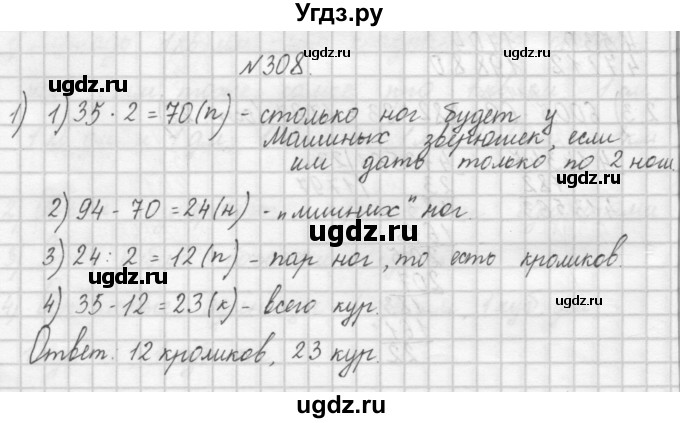 Угдз.ру
ugdz.ru ugdz.ru
№308.
ugdz.ru
1) 1) 35 · 2 = 70 (п) - столько ног будет у
Машиных зверюшек, если
ugdz.ru
им дать только по 2 ноги
ugdz.ru
2) 94 - 70 = 24 (н) - „лишних" ног.
ugdz.ru
ugdz.ru
3) 24 : 2 = 12 (п) - пар ног, то есть кроликов.
ugdz.ru
4) 35 - 12 = 23 (к) - всего кур.
ugdz.ru
Ответ: 12 кроликов, 23 кур.
ugdz.ru
ugdz.ru